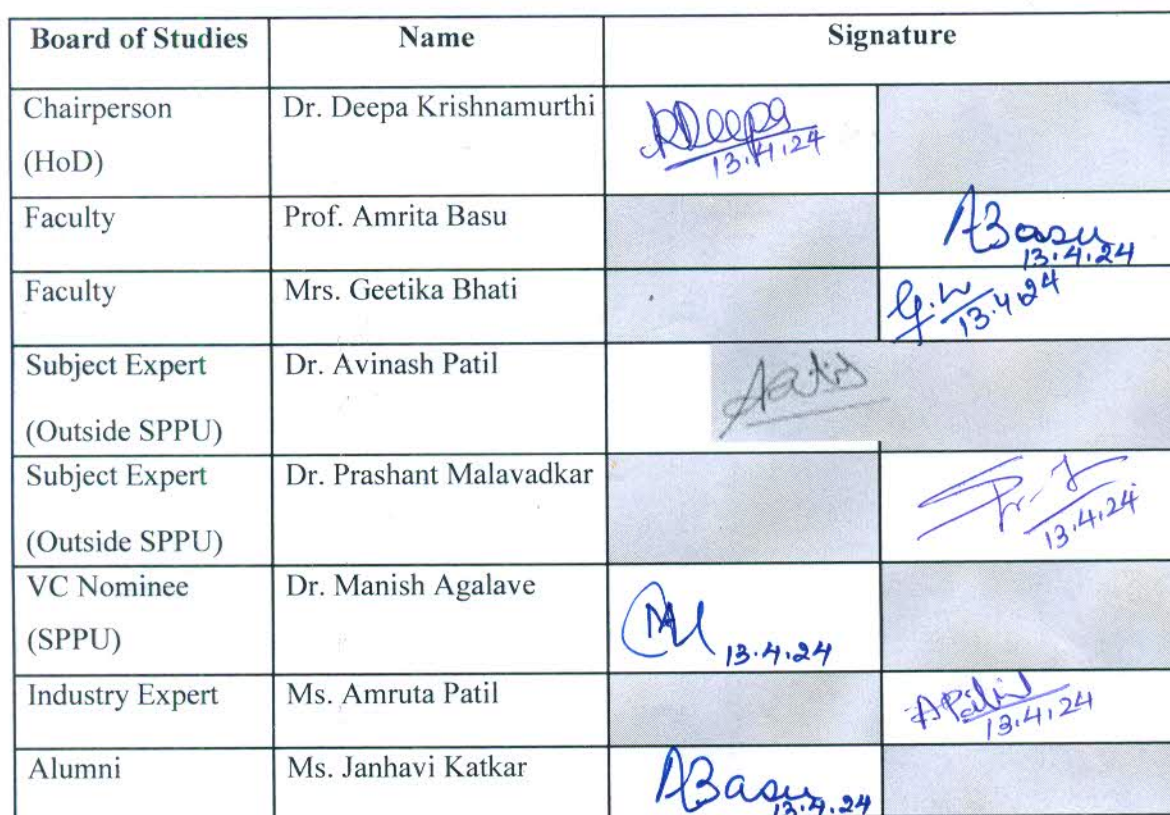 Board of Studies Name Signature
Chairperson Dr. Deepa Krishnamurthi
(HoD)
RDeepa
13.4.24
Faculty Prof. Amrita Basu
ABasu
13.4.24
Faculty Mrs. Geetika Bhati
13.4.24
Subject Expert Dr. Avinash Patil
(Outside SPPU)
Subject Expert Dr. Prashant Malavadkar
(Outside SPPU)
13.4.24
VC Nominee Dr. Manish Agalave
(SPPU)
13.4.24
Industry Expert Ms. Amruta Patil
APatil
13.4.24
Alumni Ms. Janhavi Katkar
ABasu
13.4.24